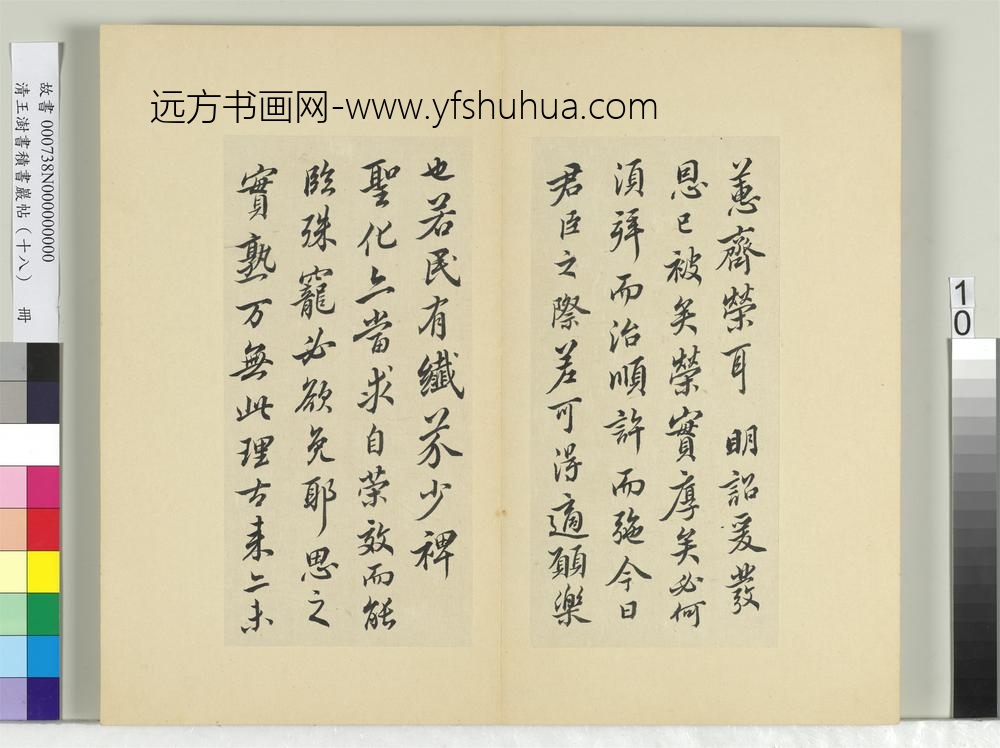 远方书画网-www.yfshuhua.com
故書 000738N000000000
清王澍書積書巖帖(十八) 冊
10
蕙齊榮耳 明詔爰發
恩已被矣榮實厚矣必何
須拜而治順許而施今日
君臣之際差可得適願樂
也若民有纖芥少裨
聖化亦當求自荣效而能
臨殊寵必欲免耶思之
實熟万無此理古来亦未